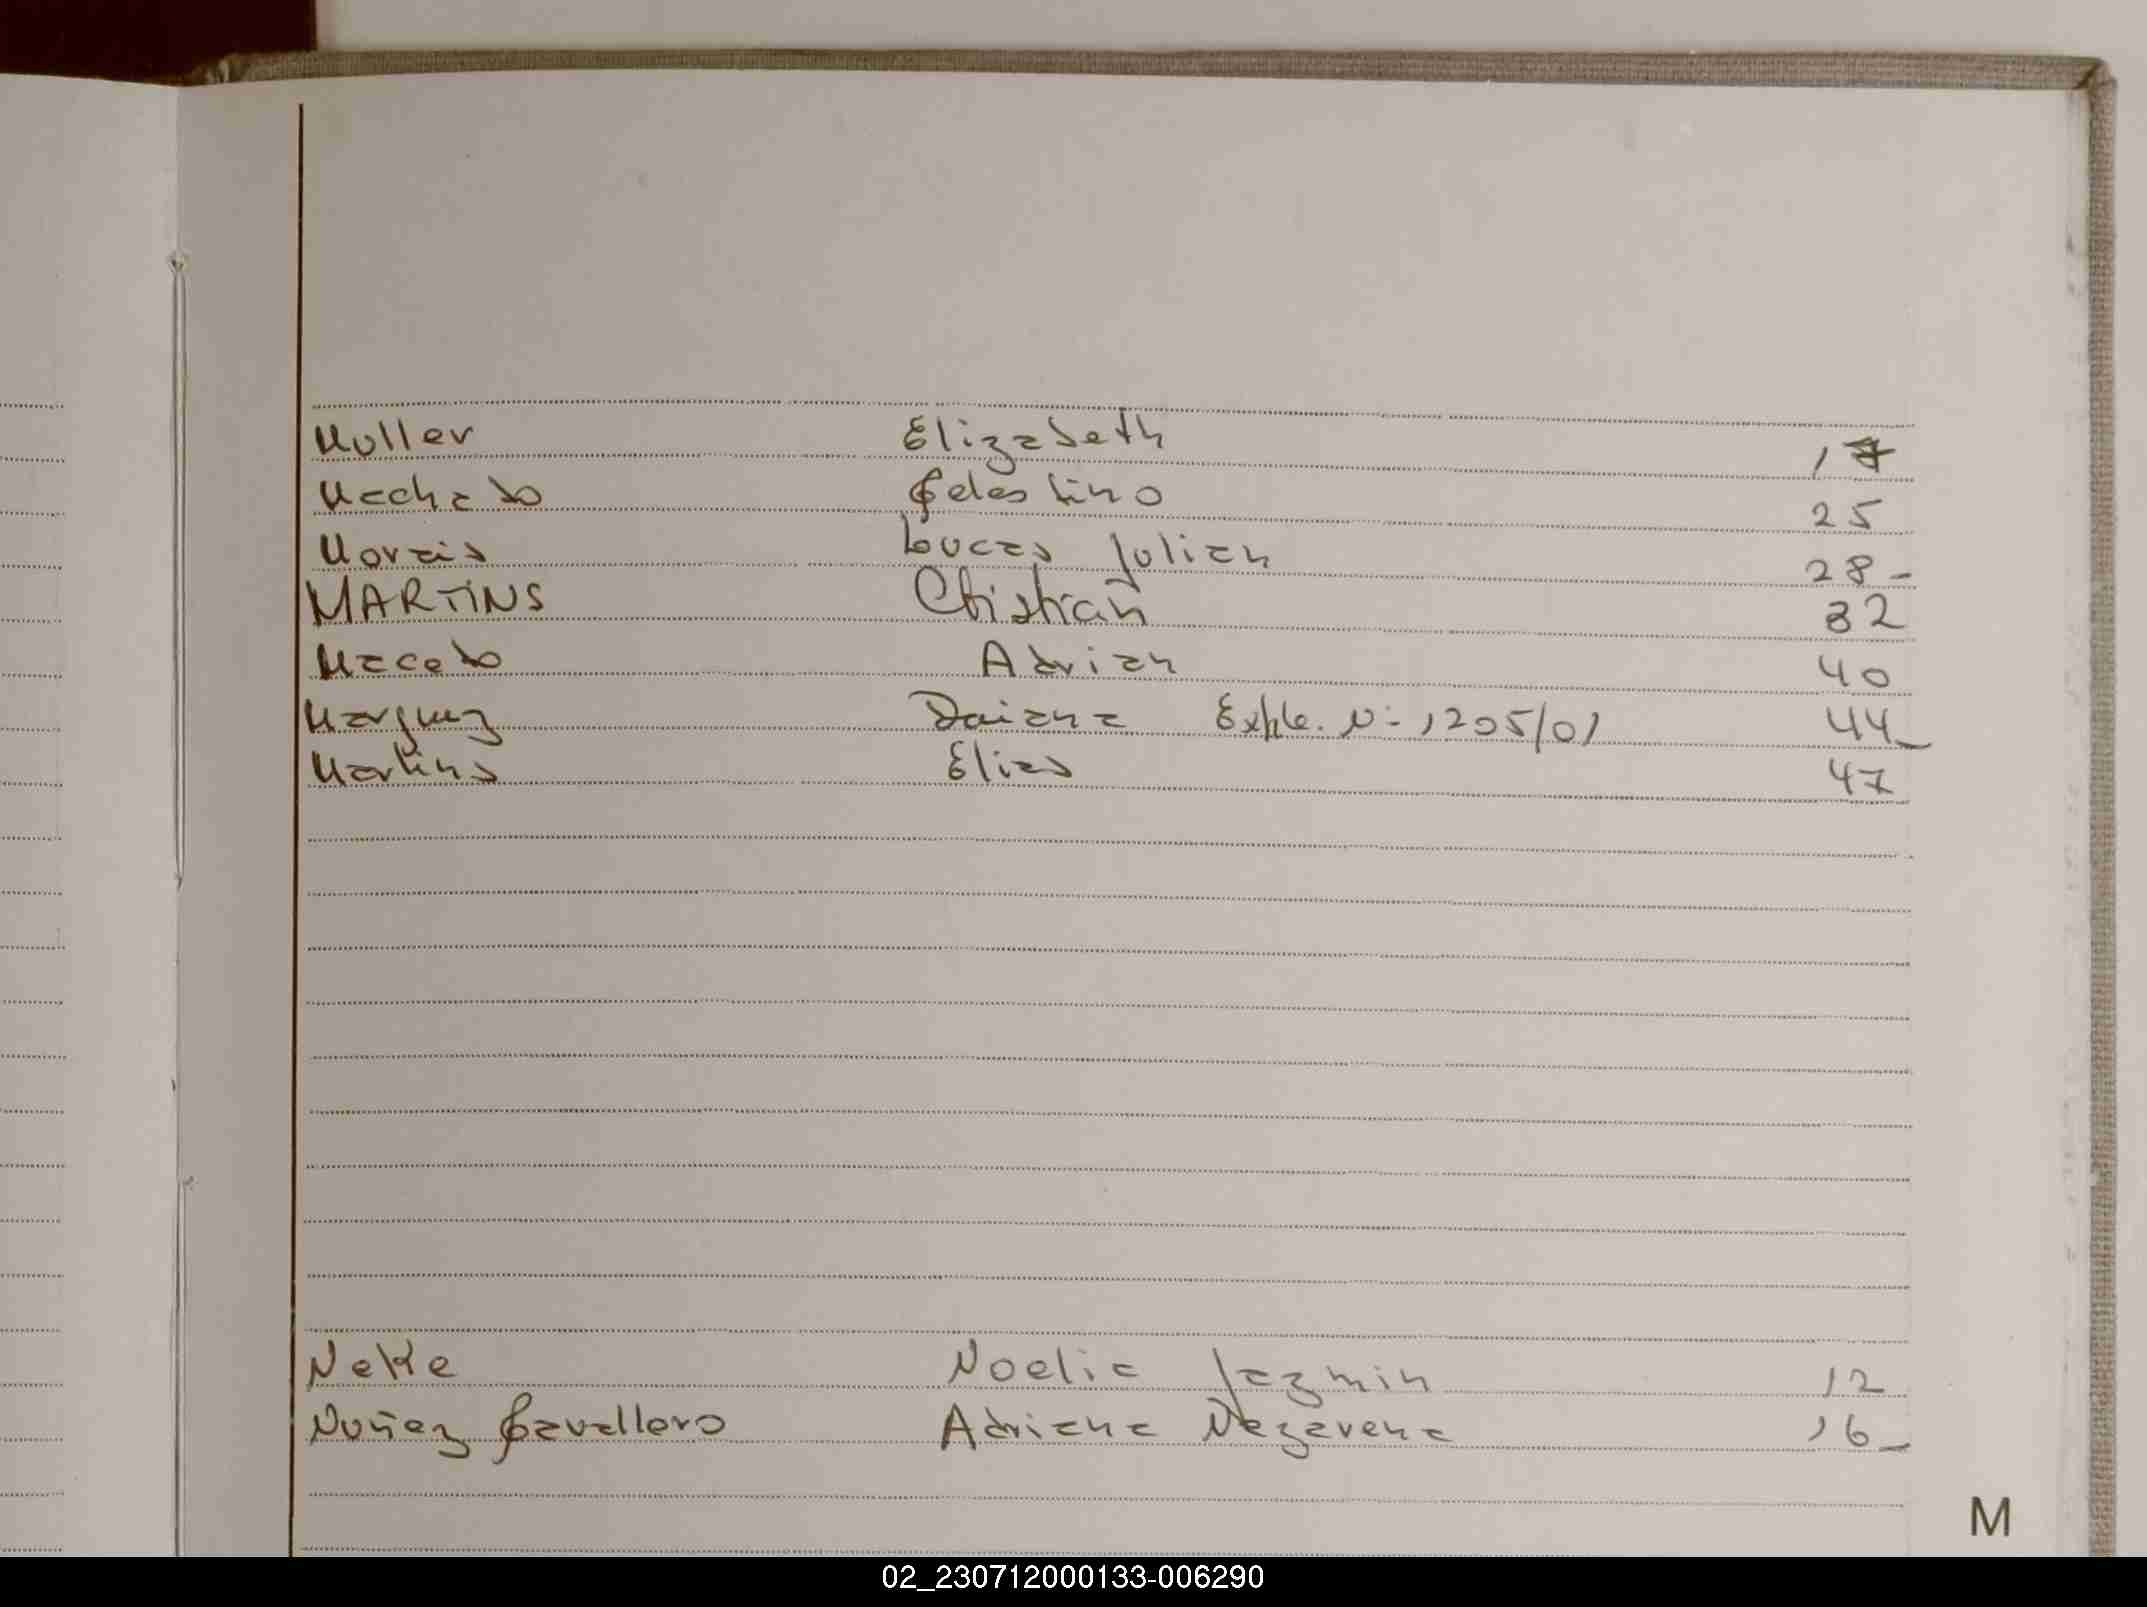 Muller Elizabeth 17
Machado Celestino 25
Morais Lucas Julian 28-
MARTINS Christian 32
Macedo Adrian 40
Marquez Daiana Expte. N= 1205/01 44-
Martins Elias 47
Neke Noelia Jazmin 12
Nuñez Cavallero Adriana Nazarena 16-
M
02_230712000133-006290